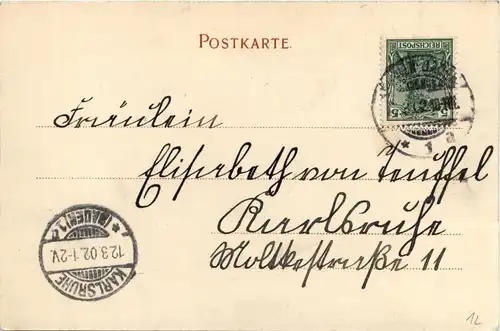 POSTKARTE.
REICHSPOST
5 5
* 1 a
Fräulein
Elisabeth von Teuffel
Karlsruhe
Moltkestraße 11
* (BADEN) 1.
12.3.02. 1-2V.
KARLSRUHE
12